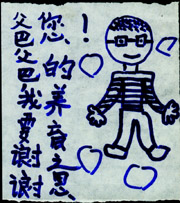 爸爸我要谢谢
您的养育之恩！